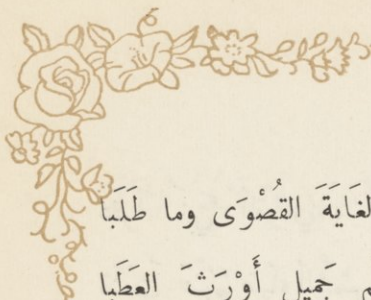 الغَايَةَ القُصْوَى وما طَلَبَا
جَمِيلٍ أَوْرَثَ العَطَبا